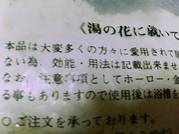 《湯の花に就いて
本品は大変多くの方々に愛用されて
ない為、効能・用法は記載出来ませ
なお、注意事項としてホーロー・金
る事もありますので使用後は浴槽を
○ご注文を承っております。